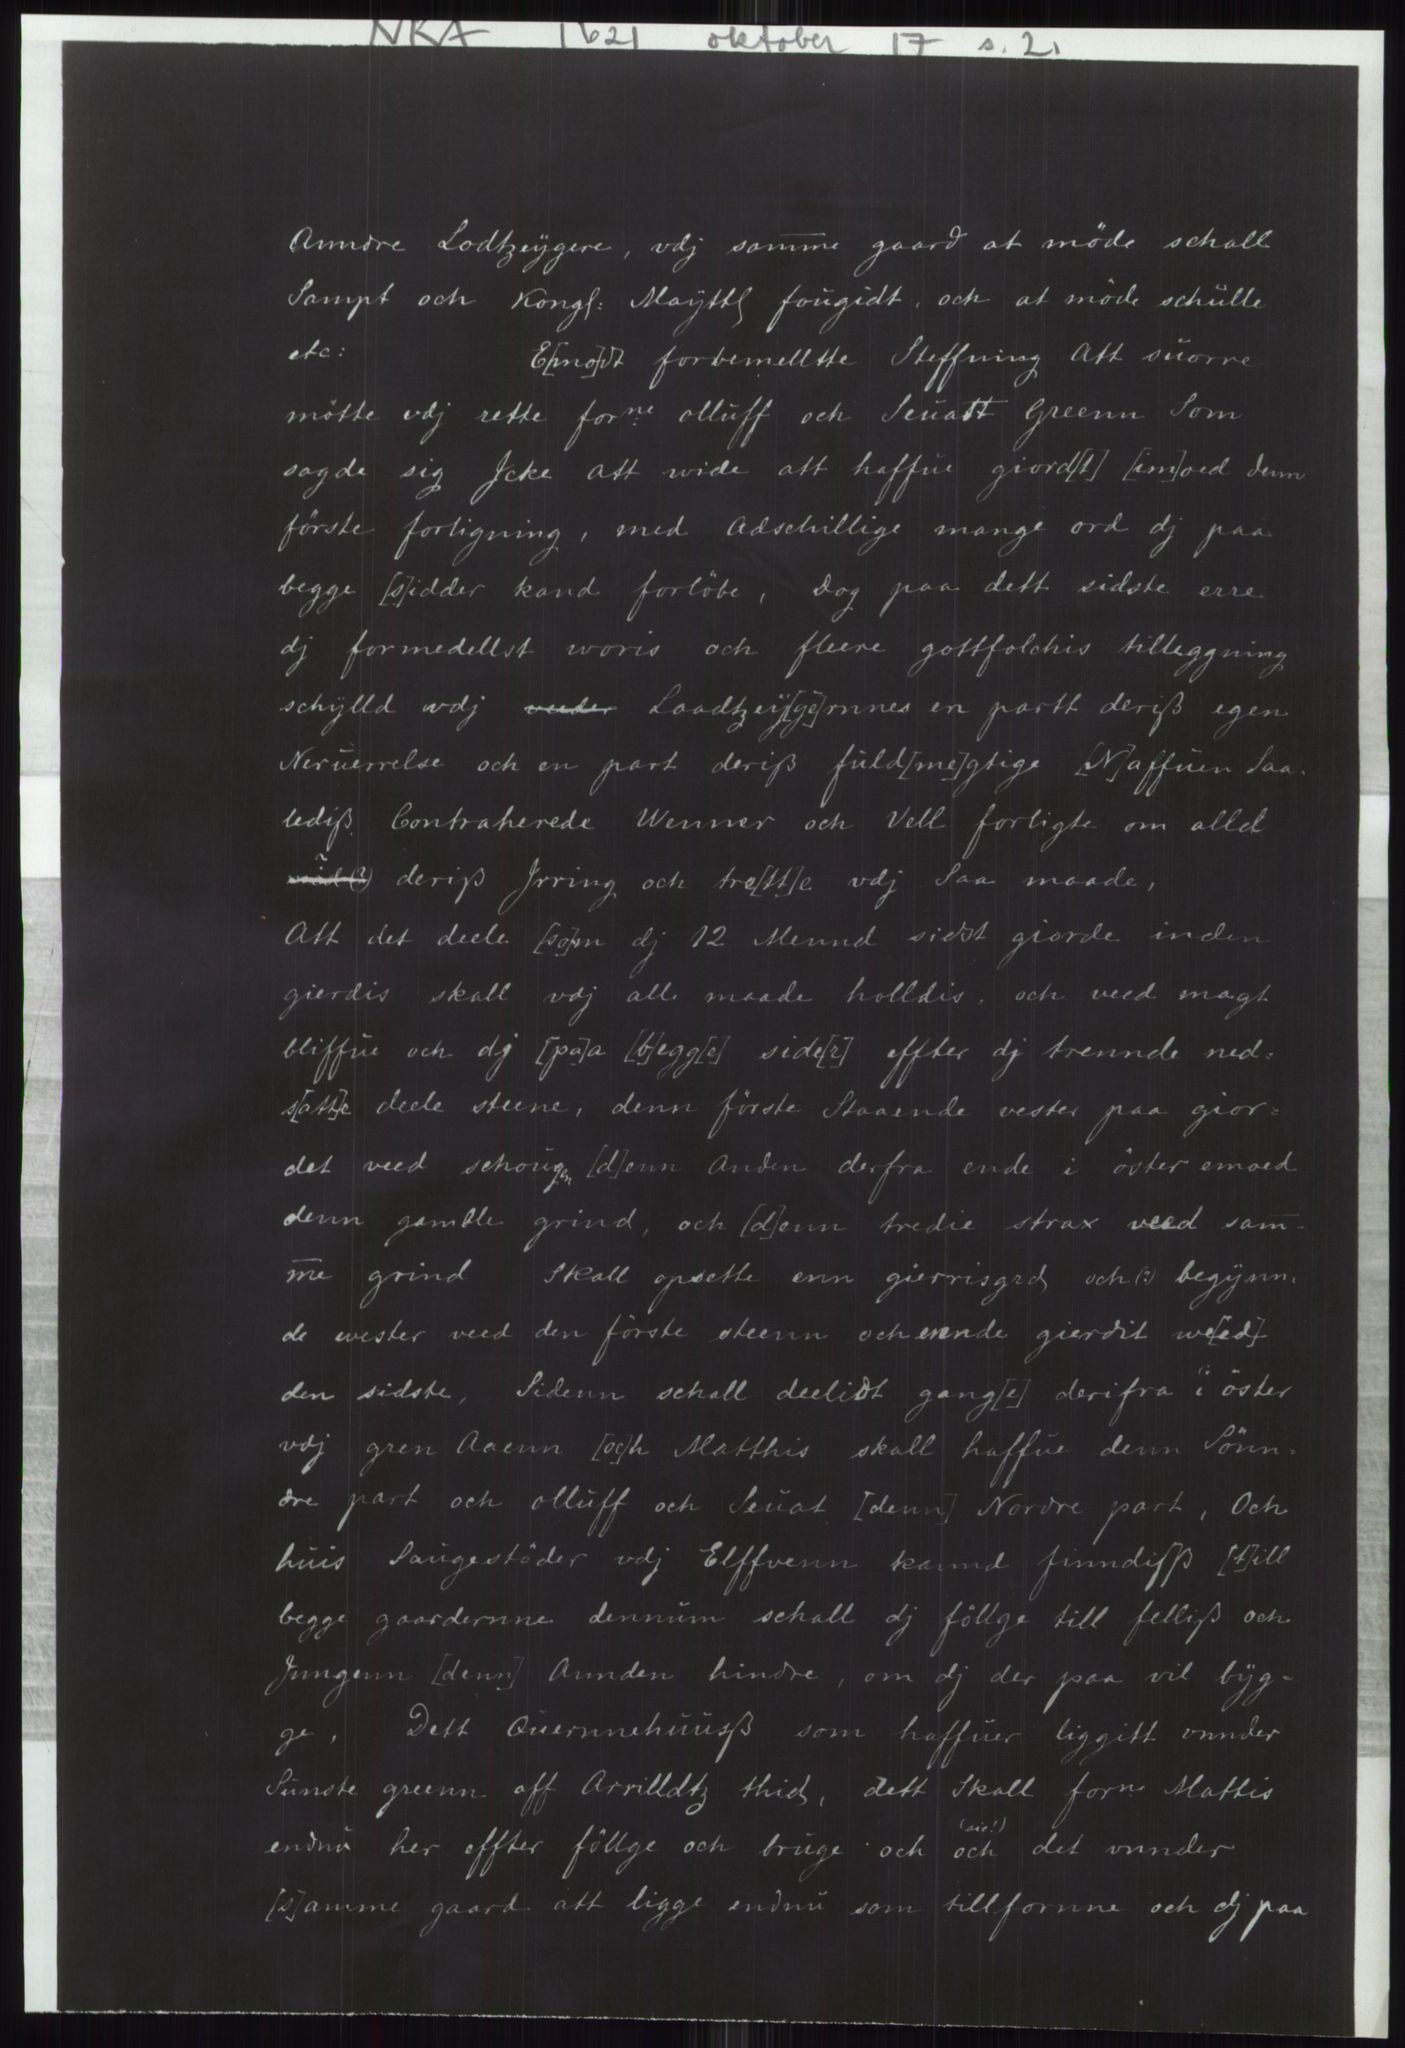 NKA 1621 oktober 17 s. 2.
Anndre Lodtzeÿgere, vdj sam̅me gaard at möde schall
Sampt och Kongl: Maÿttl fougidt, och at möde schulle
etc: E[mo]dt forbemelltte Steffning Att suorre
mötte vdj rette forne olluff och Seuatt Greenn Som
sagde sig Jcke att wide att haffue giord[t] [im]oed denn
förste forligning, med Adschillige mange ord dj paa
begge [s]idder kand forlöbe, Dog paa dett sidste erre
dj formedellst woris och fleere gottfolchis tilleggning
schÿlld vdj Loodtzeÿ[ge]rnnes en partt deriß egen
Neruerrelse och en part deriß fuld[me]gtige [N]affuen Saa-
lediß Contraherede Wenner och Vell forligte om alld
deriß Jrring och tre[tt]e vdj Saa maade,
Att det deele [so]m dj 12 Mennd sidst giorde inden
gierdis skall vdj alle maade holldis, och veed magt
bliffue och dj [pa]a [b]egg[e] side[r] effter dj trennde ned:
s[att]e deele steene, denn förste Staaende vester paa gior=
det veed schougen [d]enn Anden derfra ende i öster emoed
denn gamble grind, och [d]enn tredie strax veed sam̅-
m̅e grind Skall opsette enn gierrisgrd och (?) begÿnn=
de wester veed den förste steenn och ennde gierdit we[ed]
den sidste, Sidenn schall deelidt gang[e] derifra i öster
vdj gren Aaenn [oc]h Matthis skall haffue denn Sönn=
dre part och olluff och Seuat [denn] Nordre part, Och
huis Saugestöder vdj Elffvenn kannd finndisß [t]ill
begge gaardernne dennum schall dj föllge till felliß och
Jnngenn [denn] Annden hindre, om dj der paa vil bÿg=
ge, Dett Quernnehuusß som haffuer liggitt vnnder
Sunste greenn aff Arrilldtz thid, dett Skall forne Mattis
endnu her effter föllge och bruge och och (sic!) det vnnder
[s]amme gaard att ligge endnu som tillfornne och dj paa